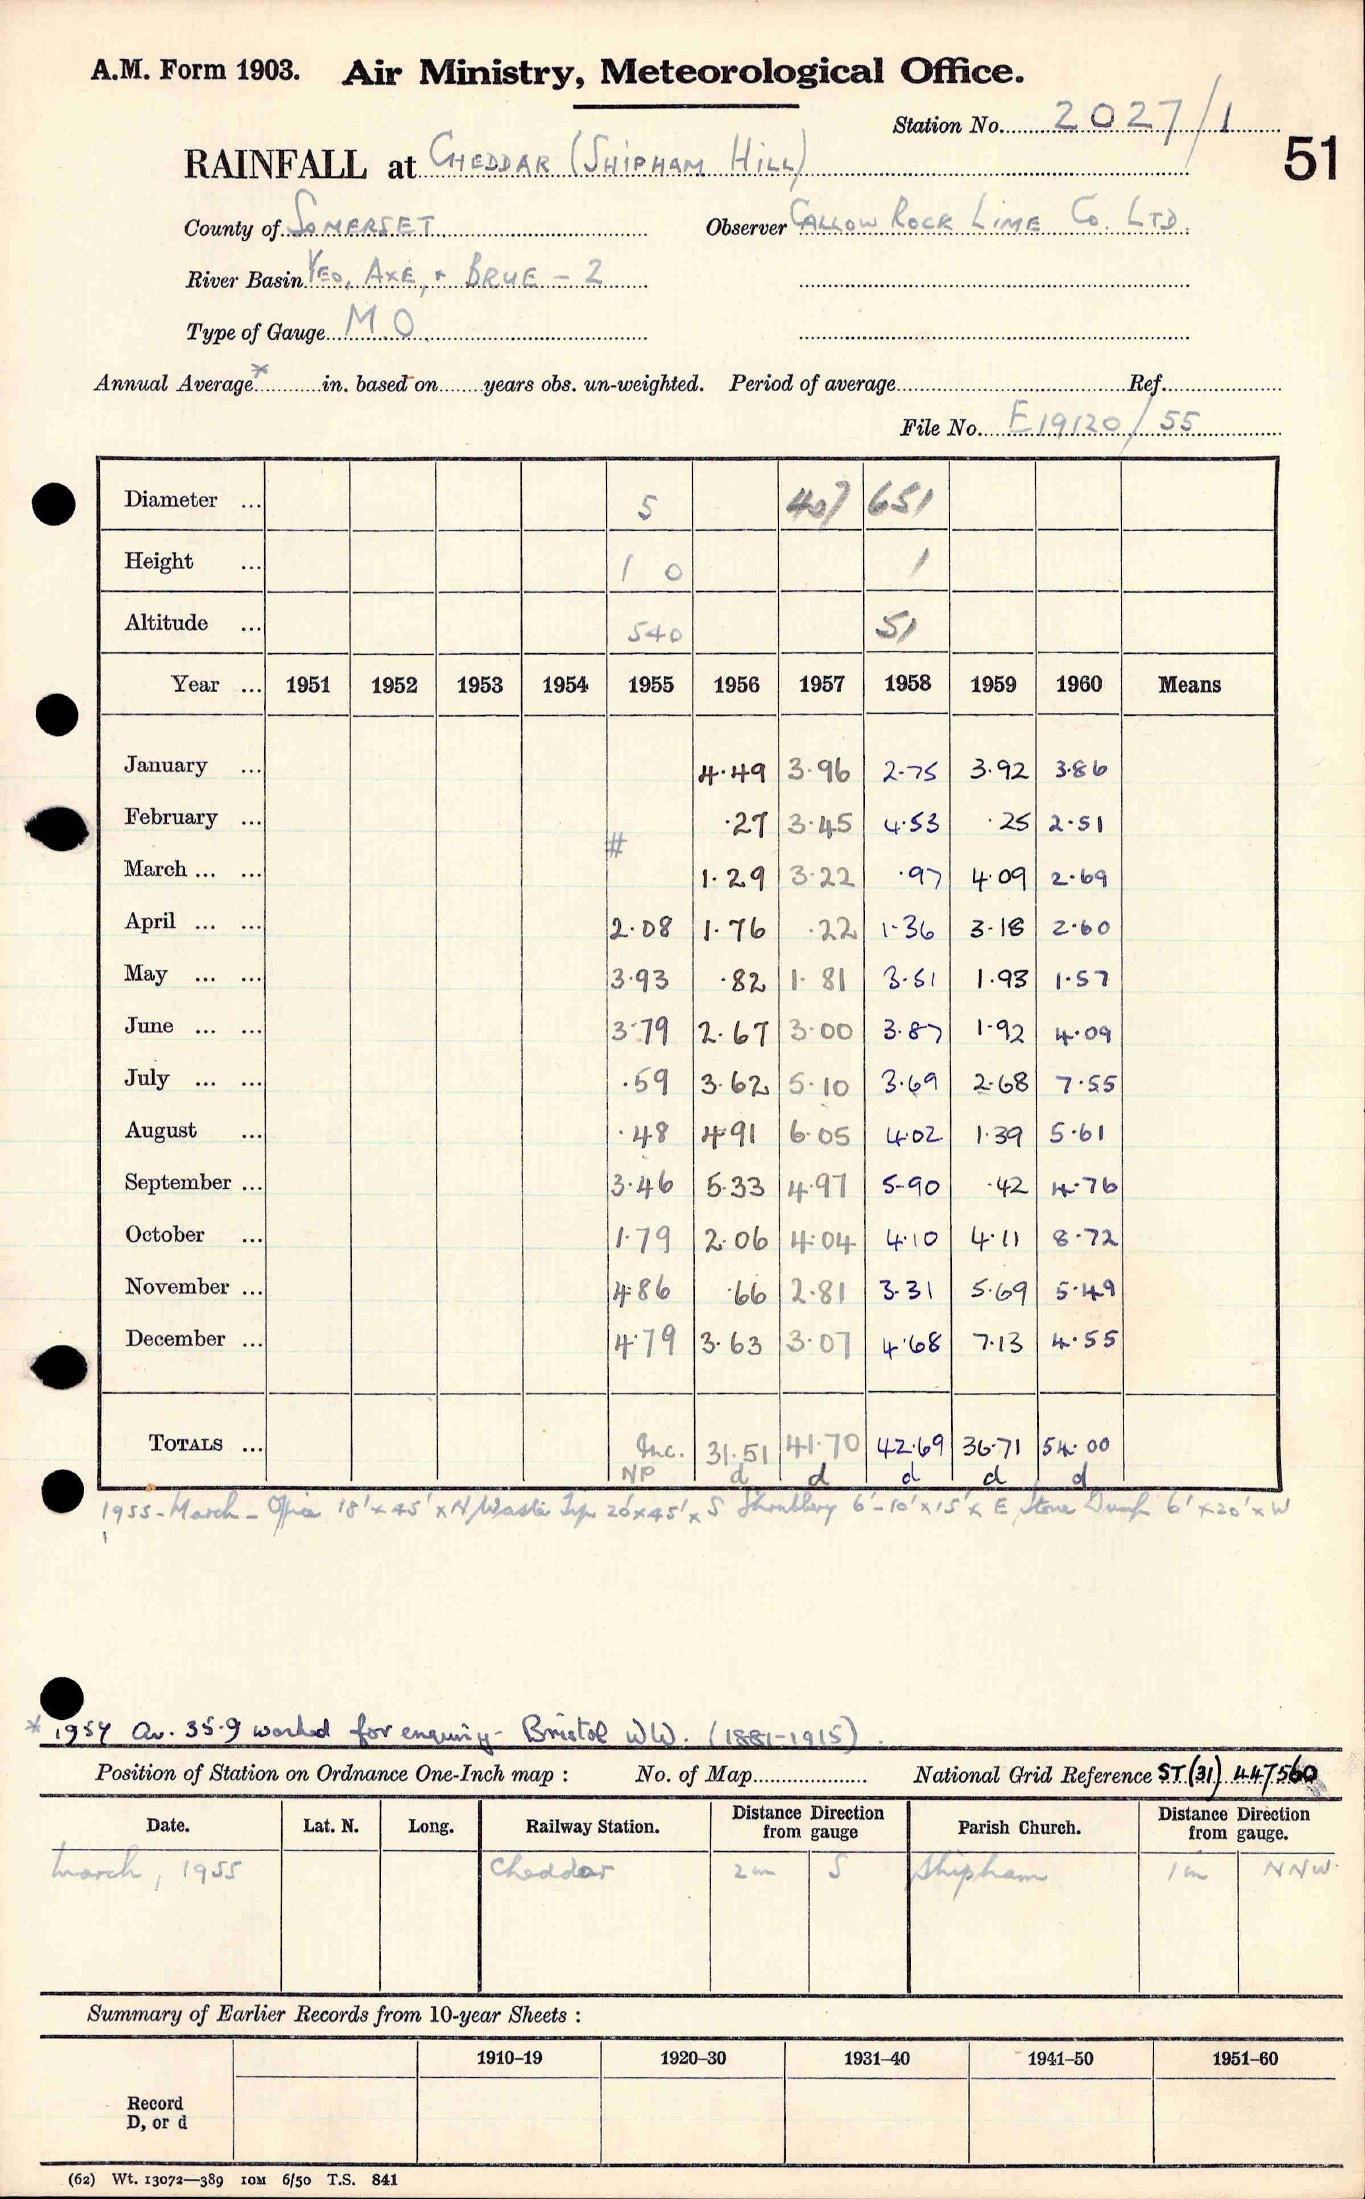 A.M. Form 1903. Air Ministry, Meteorological Office.
Station No. 2027/1
51
RAINFALL at CHEDDAR (SHIPHAM HILL)
County of SOMERSET Observer CALLOW ROCK LIME CO. LTD.
River Basin YEO, AXE, + BRUE - 2
Type of Gauge M O
Annual Average * in. based on years obs. un-weighted. Period of average Ref.
File No. E19120/55
Diameter ... 5 407 651
Height ... 1 0 1
Altitude ... 540 51
Year ... 1951 1952 1953 1954 1955 1956 1957 1958 1959 1960 Means
January ... 4.49 3.96 2.75 3.92 3.86
February ... .27 3.45 4.53 .25 2.51
#
March ... ... 1.29 3.22 .97 4.09 2.69
April ... ... 2.08 1.76 .22 1.36 3.18 2.60
May ... ... 3.93 .82 1.81 3.51 1.93 1.57
June ... ... 3.79 2.67 3.00 3.87 1.92 4.09
July ... ... .59 3.62 5.10 3.69 2.68 7.55
August ... .48 4.91 6.05 4.02 1.39 5.61
September ... 3.46 5.33 4.97 5.90 .42 4.76
October ... 1.79 2.06 4.04 4.10 4.11 8.72
November ... 4.86 .66 2.81 3.31 5.69 5.49
December ... 4.79 3.63 3.07 4.68 7.13 4.55
TOTALS ... Inc. 31.51 41.70 42.69 36.71 54.00
NP d d d d d
1955 - March - Office 18' x 45' x N Waste Tip 20' x 45' x S Shrubbery 6'-10' x 15' x E Stone Dump 6' x 20' x W
* 1957 Av. 35.9 worked for enquiry - Bristol WW. (1881-1915).
Position of Station on Ordnance One-Inch map : No. of Map National Grid Reference ST (31) 447560
Date. Lat. N. Long. Railway Station. Distance Direction from gauge Parish Church. Distance Direction from gauge.
March, 1955 Cheddar 2m S Shipham 1m NNW
Summary of Earlier Records from 10-year Sheets :
1910–19 1920–30 1931–40 1941–50 1951–60
Record
D, or d
(62) Wt. 13072—389 10M 6/50 T.S. 841